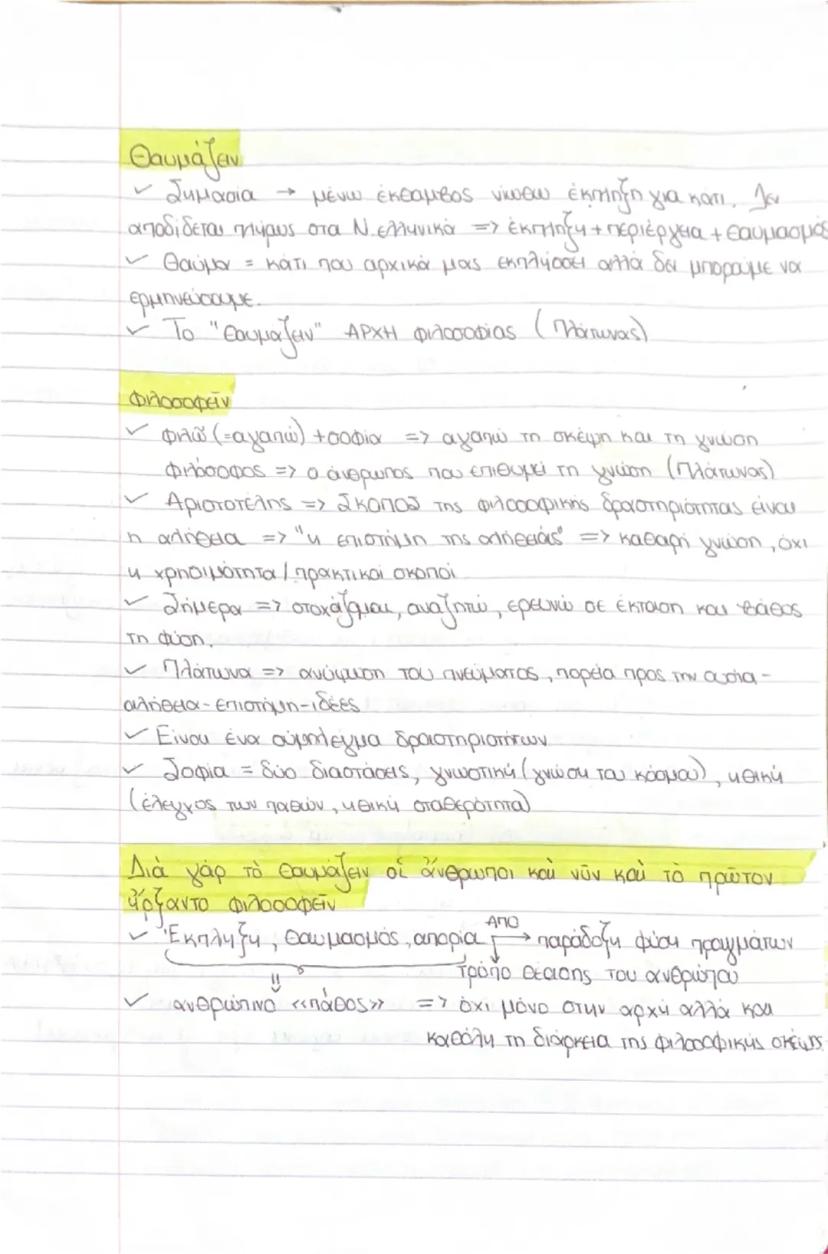 Θαυμάζειν
✓ Σημασία → μένω έκθαμβος νιώθω έκπληξη για κάτι. Δεν
αποδίδεται πλήρως στα Ν.ελληνικά => έκπληξη + περιέργεια + θαυμασμός
✓ Θαύμα = κάτι που αρχικά μας εκπλήσσει αλλά δεν μπορούμε να
ερμηνεύσουμε.
✓ Το "θαυμάζειν" ΑΡΧΗ φιλοσοφίας (Πλάτωνας)
Φιλοσοφεῖν
✓ φιλῶ (=αγαπώ) + σοφία => αγαπώ τη σκέψη και τη γνώση
φιλόσοφος => ο άνθρωπος που επιθυμεί τη γνώση (Πλάτωνας)
✓ Αριστοτέλης => ΣΚΟΠΟΣ της φιλοσοφικής δραστηριότητας είναι
η αλήθεια => "η επιστήμη της αληθείας" => καθαρή γνώση, όχι
η χρησιμότητα / πρακτικοί σκοποί
✓ Σήμερα => στοχάζομαι, αναζητώ, ερευνώ σε έκταση και βάθος
τη φύση.
✓ Πλάτωνα => ανύψωση του πνεύματος, πορεία προς την ουσία-
αλήθεια-επιστήμη-ιδέες
✓ Είναι ένα σύμπλεγμα δραστηριοτήτων
✓ Σοφία = δύο διαστάσεις, γνωστική (γνώση του κόσμου), ηθική
(έλεγχος των παθών, ηθική σταθερότητα)
Διὰ γάρ τὸ θαυμάζειν οἱ ἄνθρωποι καὶ νῦν καὶ τὸ πρῶτον
ἤρξαντο φιλοσοφεῖν
✓ Έκπληξη, θαυμασμός, απορία ΑΠΟ → παράδοξη φύση πραγμάτων
τρόπο θέασης του ανθρώπου
✓ ανθρώπινο «πάθος» => όχι μόνο στην αρχή αλλά και
καθόλη τη διάρκεια της φιλοσοφικής σκέψης